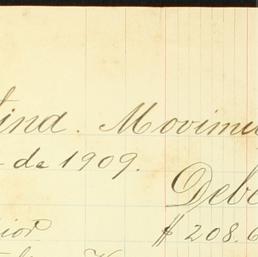 tina. Movimie
de 1909.
Debe
rior $ 208.6